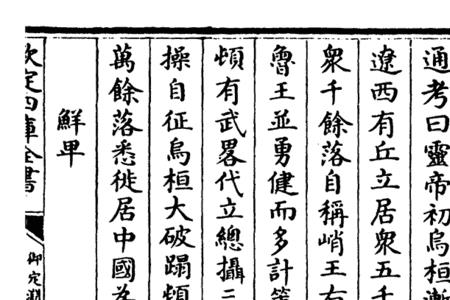 通考曰靈帝初烏桓漸
遼西有丘立居衆五千
衆千餘落自稱峭王右
魯王並勇健而多計策
頓有武畧代立總攝三
操自征烏桓大破蹋頓
萬餘落悉徙居中國為
鮮卑
欽定四庫全書
御定淵